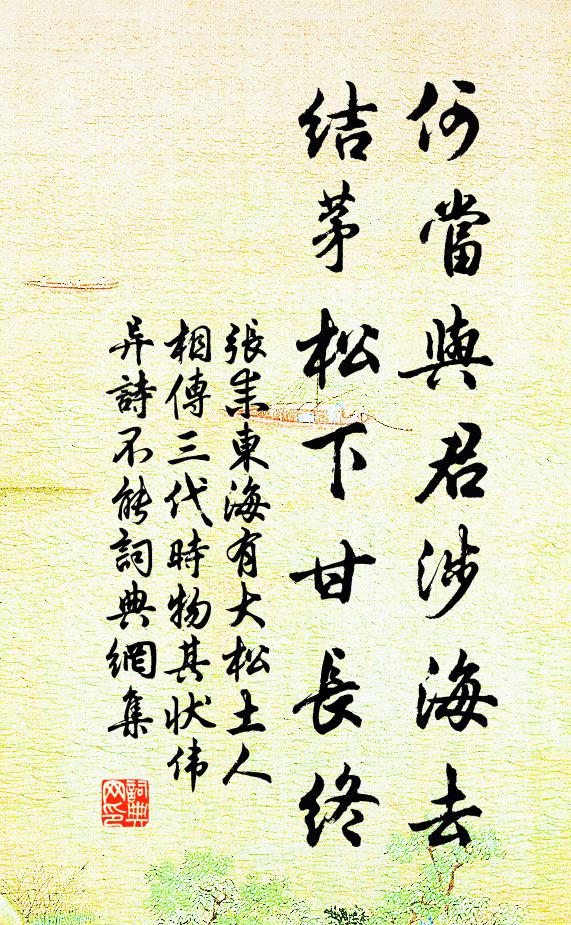 何當與君涉海去
結茅松下甘長終
張耒東海有大松土人
相傳三代時物其狀伟
异詩不能詞典網集
詞典
网印